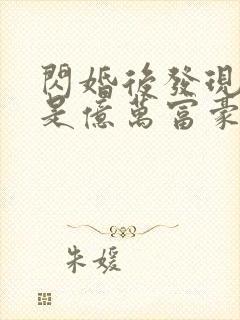 閃婚後發現
是億萬富豪
朱媛